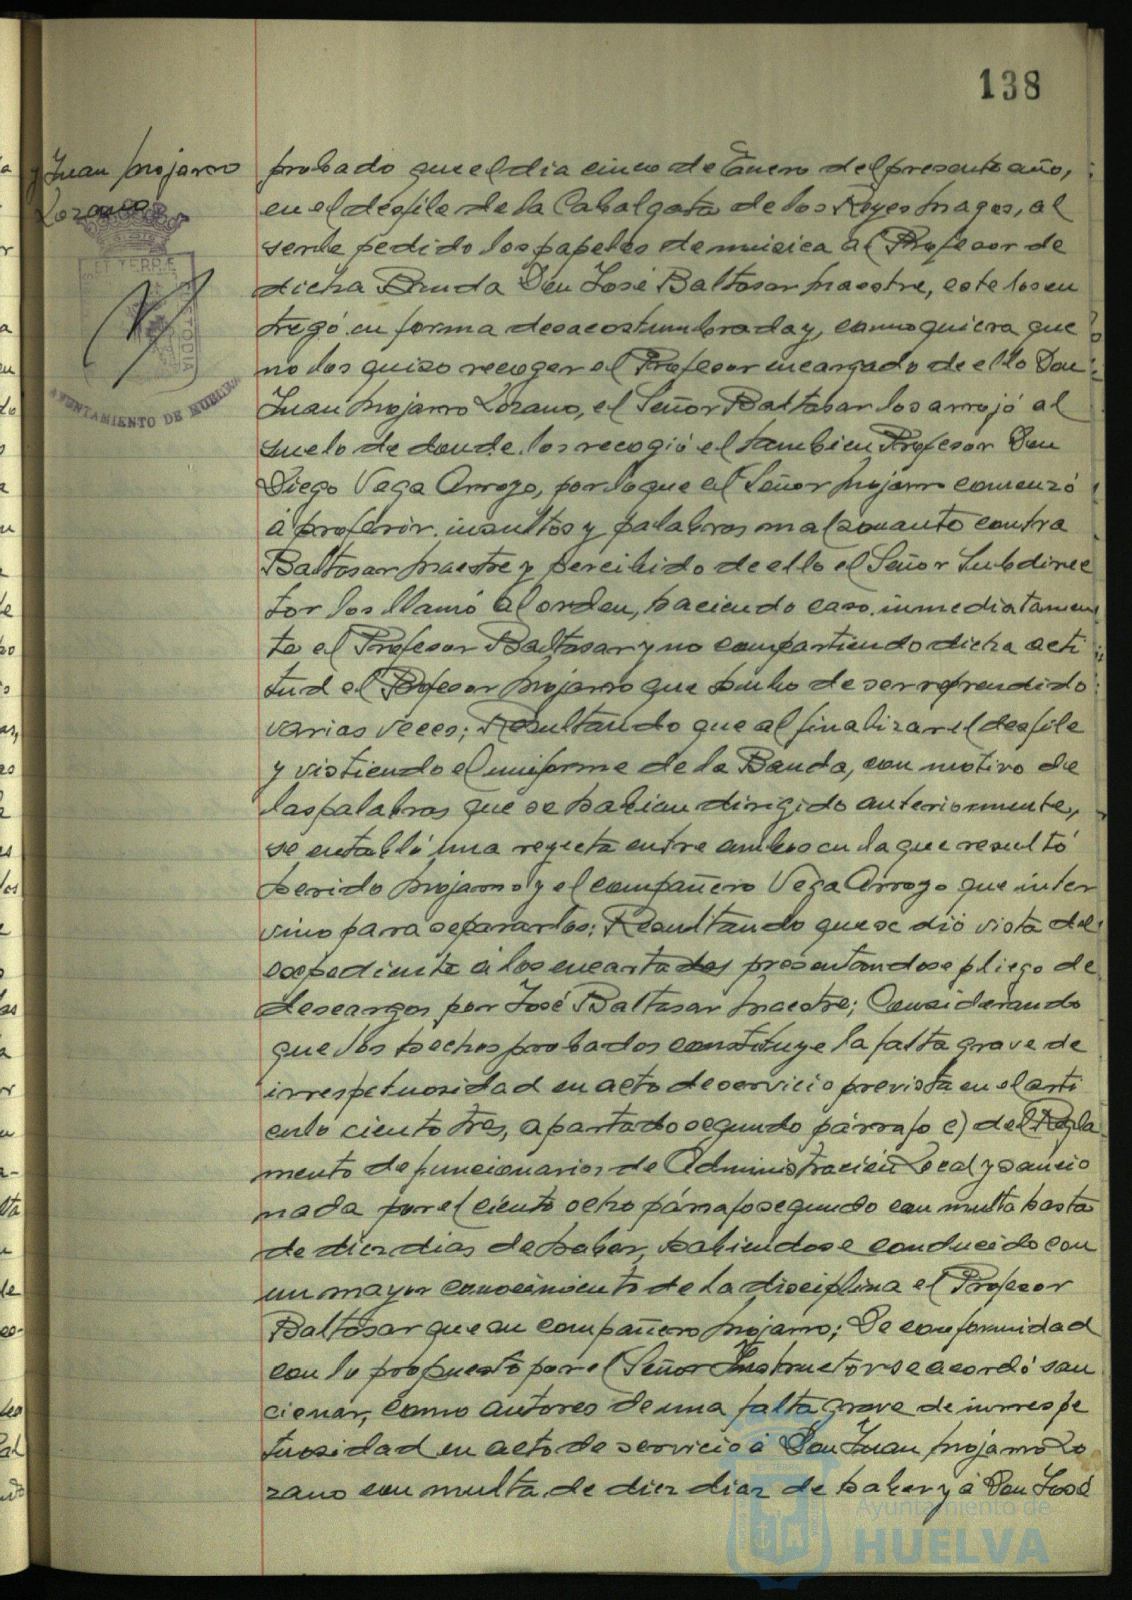 138
y Juan Mojarro
Lozano
ET TERRÆ
AYUNTAMIENTO DE HUELVA
probado que el dia cinco de Enero del presente año,
en el desfile de la Cabalgata de los Reyes Magos, al
serle pedido los papeles de música al Profesor de
dicha Banda Don José Baltasar Maestre, este los en
tregó en forma desacostumbrada y, como quiera que
no los quiso recoger el Profesor encargado de ello Don
Juan Mojarro Lozano, el Señor Baltasar los arrojó al
suelo de donde los recogió el tambien Profesor Don
Diego Vega Arroyo, por lo que el Señor Mojarro comenzó
á proferir insultos y palabras malsonante contra
Baltasar Maestre y percibido de ello el Señor Subdirec
tor los llamó al orden, haciendo caso inmediatamen
te el Profesor Baltasar y no compartiendo dicha acti
tud el Profesor Mojarro que hubo de ser reprendido
varias veces; Resultando que al finalizar el desfile
y vistiendo el uniforme de la Banda, con motivo de
las palabras que se habian dirigido anteriormente,
se entabló una reyecta entre ambos en la que resultó
herido Mojarro y el compañero Vega Arroyo que inter
vino para separarlos; Resultando que se dió vista del
expediente á los encartados presentandose pliego de
descargos por José Baltasar Maestre; Considerando
que los hechos probados constituye la falta grave de
irrespetuosidad en acto de servicio prevista en el arti
culo ciento tres, apartado segundo párrafo c) del Regla
mento de funcionarios de Administración Local y sancio
nada por el ciento ocho párrafo segundo con multa hasta
de diez dias de haber, habiendose conducido con
un mayor conocimiento de la disciplina el Profesor
Baltasar que su compañero Mojarro; De conformidad
con lo propuesto por el Señor Instructor se acordó san
cionar, como autores de una falta grave de irrespe
tuosidad en acto de servicio á Don Juan Mojarro Lo
zano con multa de diez dias de haber y á Don José
Ayuntamiento de
HUELVA